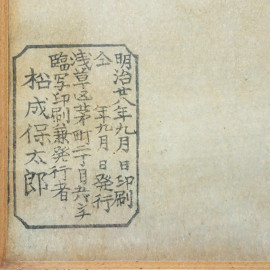 明治廿八年九月 日印刷
仝 年九月 日発行
浅草区茅町二丁目
臨写印刷兼発行者
松成保太郎